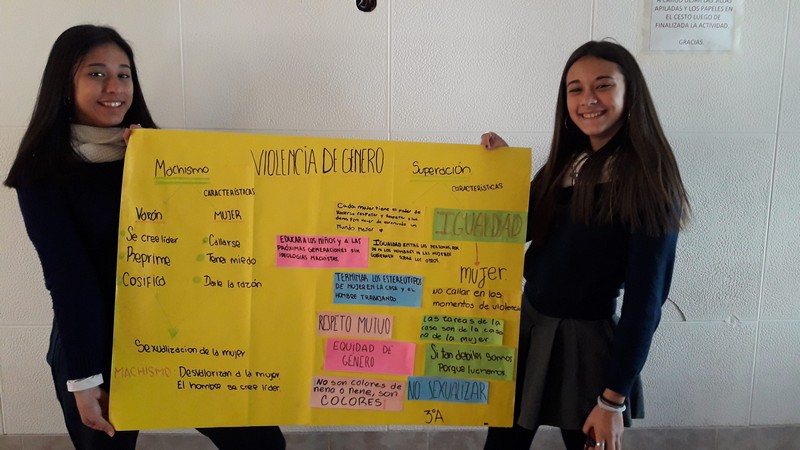 A CARGO DEJAR LAS SILLAS
APILADAS Y LOS PAPELES EN
EL CESTO LUEGO DE
FINALIZADA LA ACTIVIDAD.
GRACIAS.
VIOLENCIA DE GENERO
Machismo
CARACTERÍSTICAS
Varón
Se cree lider
Reprime
Cosifica
MUJER
Callarse
Tener miedo
Dale la razón
Sexualización de la mujer
MACHISMO: Desvalorizan a la mujer
El hombre se cree lider.
Cada mujer tiene el poder de
hacerse respetar y respetar a los
Mundo mejor
EDUCAR A LOS NIÑOS Y A LAS
PRÓXIMAS GENERACIONES SIN
IDEOLOGÍAS MACHISTAS
IGUALDAD ENTRE LAS PERSONAS,
NI LOS HOMBRES NI LAS MUJERES
SOBRE LOS OTROS.
TERMINAR LOS ESTEREOTIPOS
DE MUJER EN LA CASA Y EL
HOMBRE TRABAJANDO
RESPETO MUTUO
EQUIDAD DE
GÉNERO
NO SON COLORES DE
nena o nene, SON
COLORES
Superación
CARACTERÍSTICAS
IGUALDAD
mujer
NO callar en los
momentos de violencia
Las tareas de la
casa son de la casa
no de la mujer
Si tan debiles somos
Porque luchamos
NO SEXUALIZAR
3°A